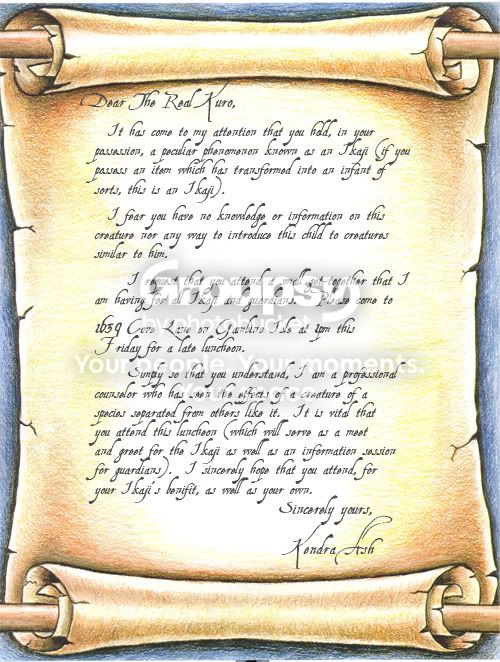 Dear The Real Kuro,
It has come to my attention that you hold, in your
possession, a peculiar phenomenon known as an Ikaji (if you
possess an item which has transformed into an infant of
sorts, this is an Ikaji).
I fear you have no knowledge or information on this
creature nor any way to introduce this child to creatures
similar to him.
I request that you attend a small get-together that I
am having for all Ikaji and guardians. Please come to
1639 Lane on Gambino Isle at 1pm this
Friday for a late luncheon.
Simply so that you understand, I am a professional
counselor who has seen the effects of a creature of a
species separated from others like it. It is vital that
you attend this luncheon (which will serve as a meet
and greet for the Ikaji as well as an information session
for guardians). I sincerely hope that you attend, for
your Ikaji's benifit, as well as your own.
Sincerely yours,
Kendra Ash
by photobucket
Your people. Your moments.